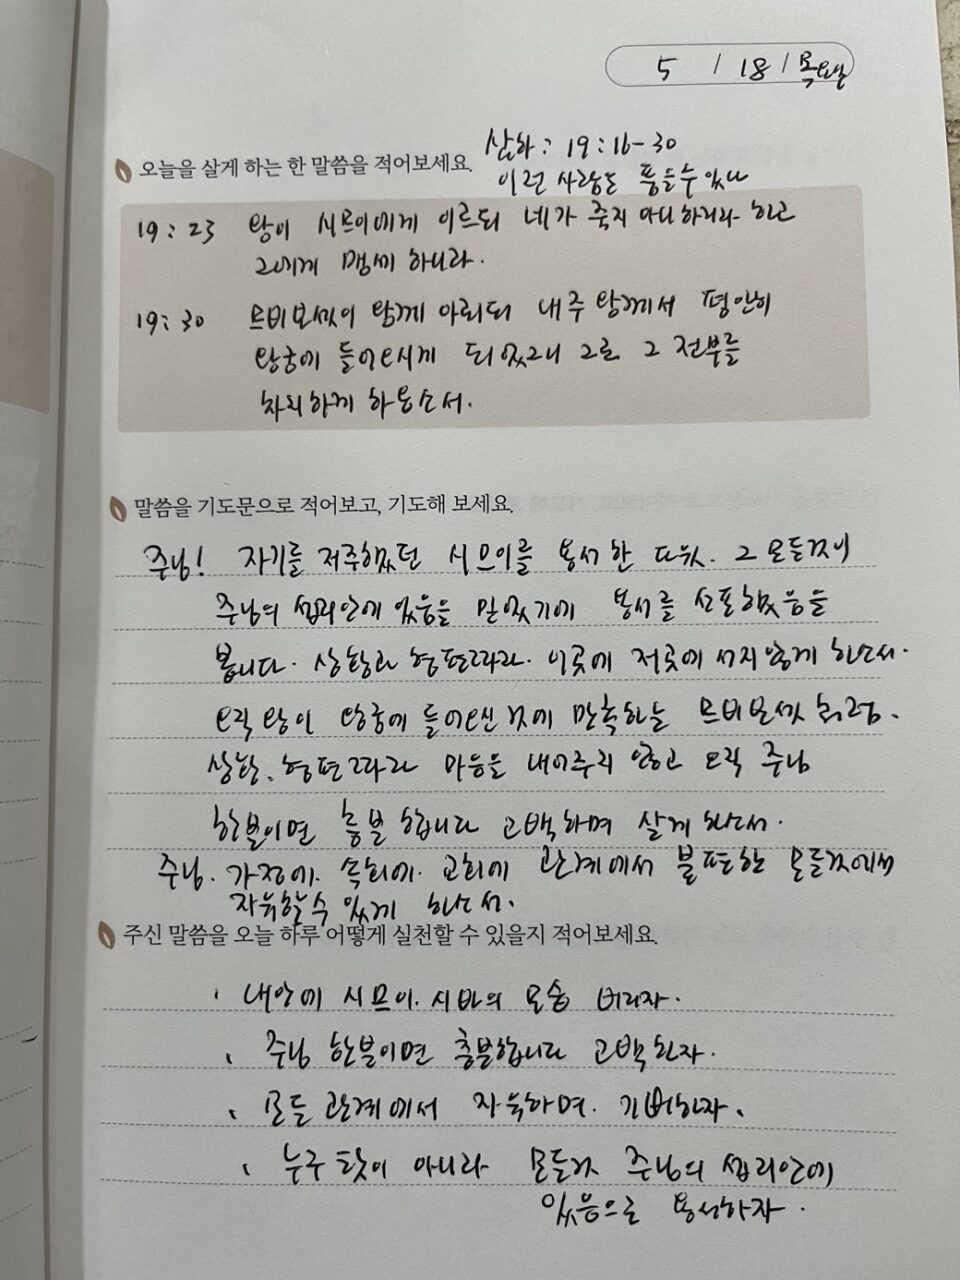 5 / 18 / 목요일
삼하 : 19 : 16-30
오늘을 살게 하는 한 말씀을 적어보세요.
이런 사람도 품을수 있나
19 : 23 왕이 시므이에게 이르되 네가 죽지 아니하리라 하고
그에게 맹세 하니라.
19 : 30 므비보셋이 왕께 아뢰되 내 주 왕께서 평안히
왕궁에 들어오시게 되었으니 그로 그 전부를
차지하게 하옵소서.
말씀을 기도문으로 적어보고, 기도해 보세요.
주님! 자기를 저주했던 시므이를 용서 한 다윗. 그 모든것이
주님의 섭리안에 있음을 믿었기에 용서를 선포했음을
봅니다. 상황과 형편따라. 이곳에 저곳에 서지 않게 하소서.
오직 왕이 왕궁에 들어오신 것에 만족하는 므비보셋 처럼.
상황. 형편따라 마음을 내어주지 않고 오직 주님
한분이면 충분 합니다 고백하며 살게 하소서.
주님. 가정에. 속회에. 교회에 관계에서 불편한 모든것에서
자유할수 있게 하소서.
주신 말씀을 오늘 하루 어떻게 실천할 수 있을지 적어보세요.
, 내안에 시므이. 시바의 모습 버리자.
, 주님 한분이면 충분합니다 고백하자.
, 모든 관계에서 자유하며. 기뻐하자.
, 누구 탓이 아니라 모든것 주님의 섭리안에
있음으로 용서하자.